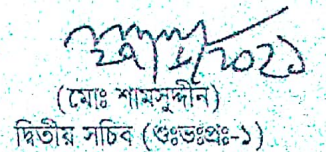 ২০২১
(মোঃ শামসুদ্দীন)
দ্বিতীয় সচিব (শুঃভঃপ্রঃ-১)